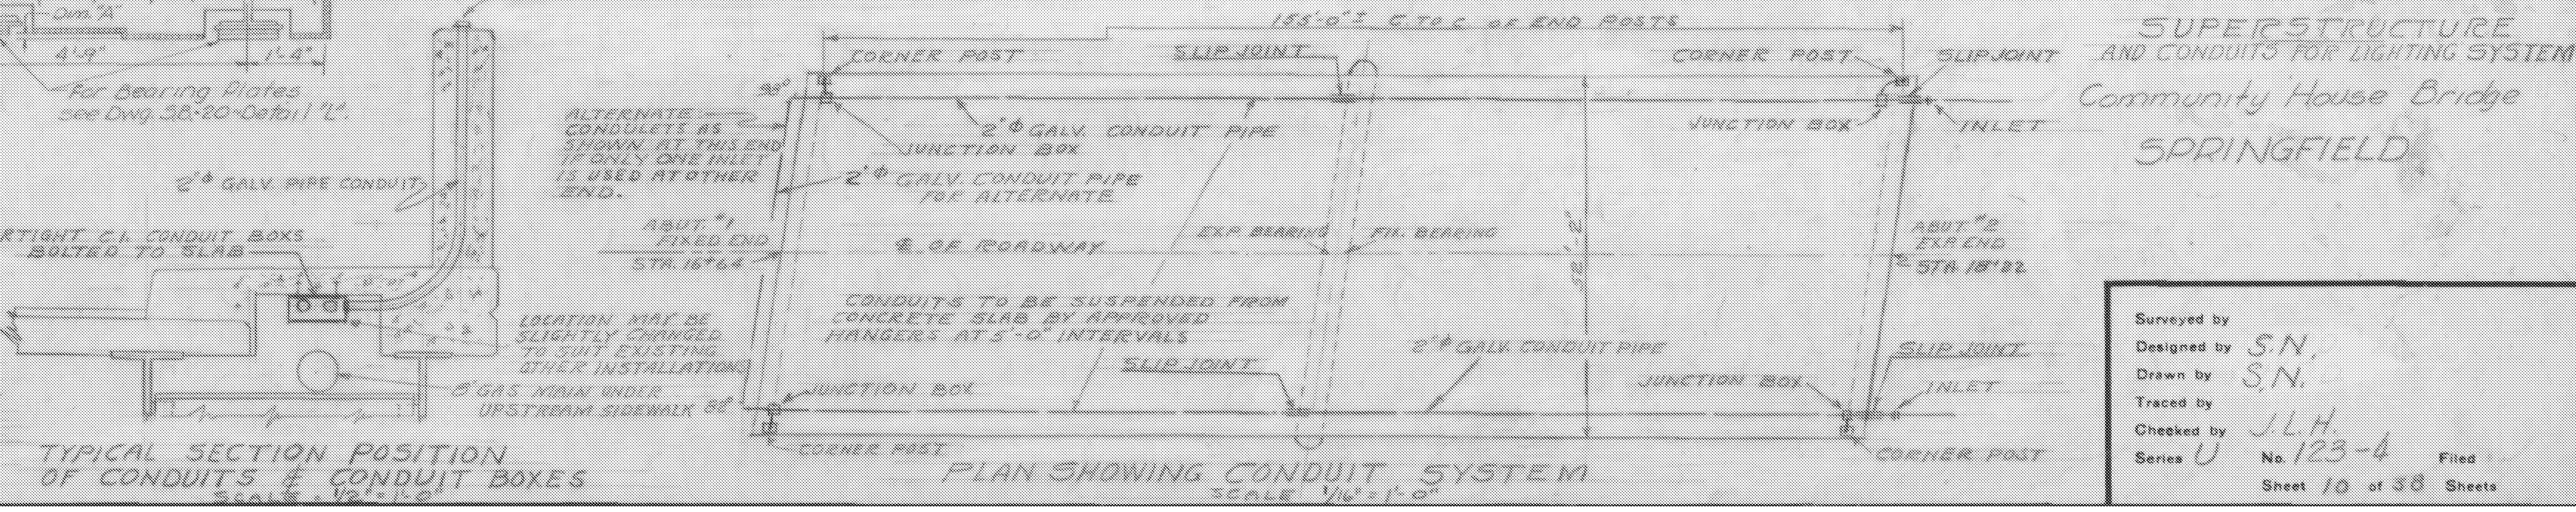 Dim. "A"
4'-9"
1'-4"
For Bearing Plates
see Dwg. S.B.-20-Detail "L".
2" Φ GALV. PIPE CONDUIT
RTIGHT C.I. CONDUIT BOXS
BOLTED TO SLAB
LOCATION MAY BE
SLIGHTLY CHANGED
TO SUIT EXISTING
OTHER INSTALLATIONS
8" GAS MAIN UNDER
UPSTREAM SIDEWALK
TYPICAL SECTION POSITION
OF CONDUITS & CONDUIT BOXES
SCALE - 1/2" = 1'-0"
155'-0"± C. TO C. OF END POSTS
CORNER POST
SLIP JOINT
CORNER POST
SLIP JOINT
ALTERNATE
CONDULETS AS
SHOWN AT THIS END
IF ONLY ONE INLET
IS USED AT OTHER
END.
2" Φ GALV. CONDUIT PIPE
JUNCTION BOX
JUNCTION BOX
INLET
2" Φ GALV. CONDUIT PIPE
FOR ALTERNATE
ABUT. #1
FIXED END
STA. 16+64
℄ OF ROADWAY
EXP. BEARING
FIX. BEARING
ABUT #2
EXP. END
STA 18+22
CONDUITS TO BE SUSPENDED FROM
CONCRETE SLAB BY APPROVED
HANGERS AT 5'-0" INTERVALS
SLIP JOINT
2" Φ GALV. CONDUIT PIPE
SLIP JOINT
JUNCTION BOX
JUNCTION BOX
INLET
CORNER POST
CORNER POST
PLAN SHOWING CONDUIT SYSTEM
SCALE 1/16" = 1'-0"
SUPERSTRUCTURE
AND CONDUITS FOR LIGHTING SYSTEM
Community House Bridge
SPRINGFIELD
Surveyed by
Designed by S.N.
Drawn by S.N.
Traced by
Checked by J.L.H.
Series U No. 123-4 Filed
Sheet 10 of 38 Sheets